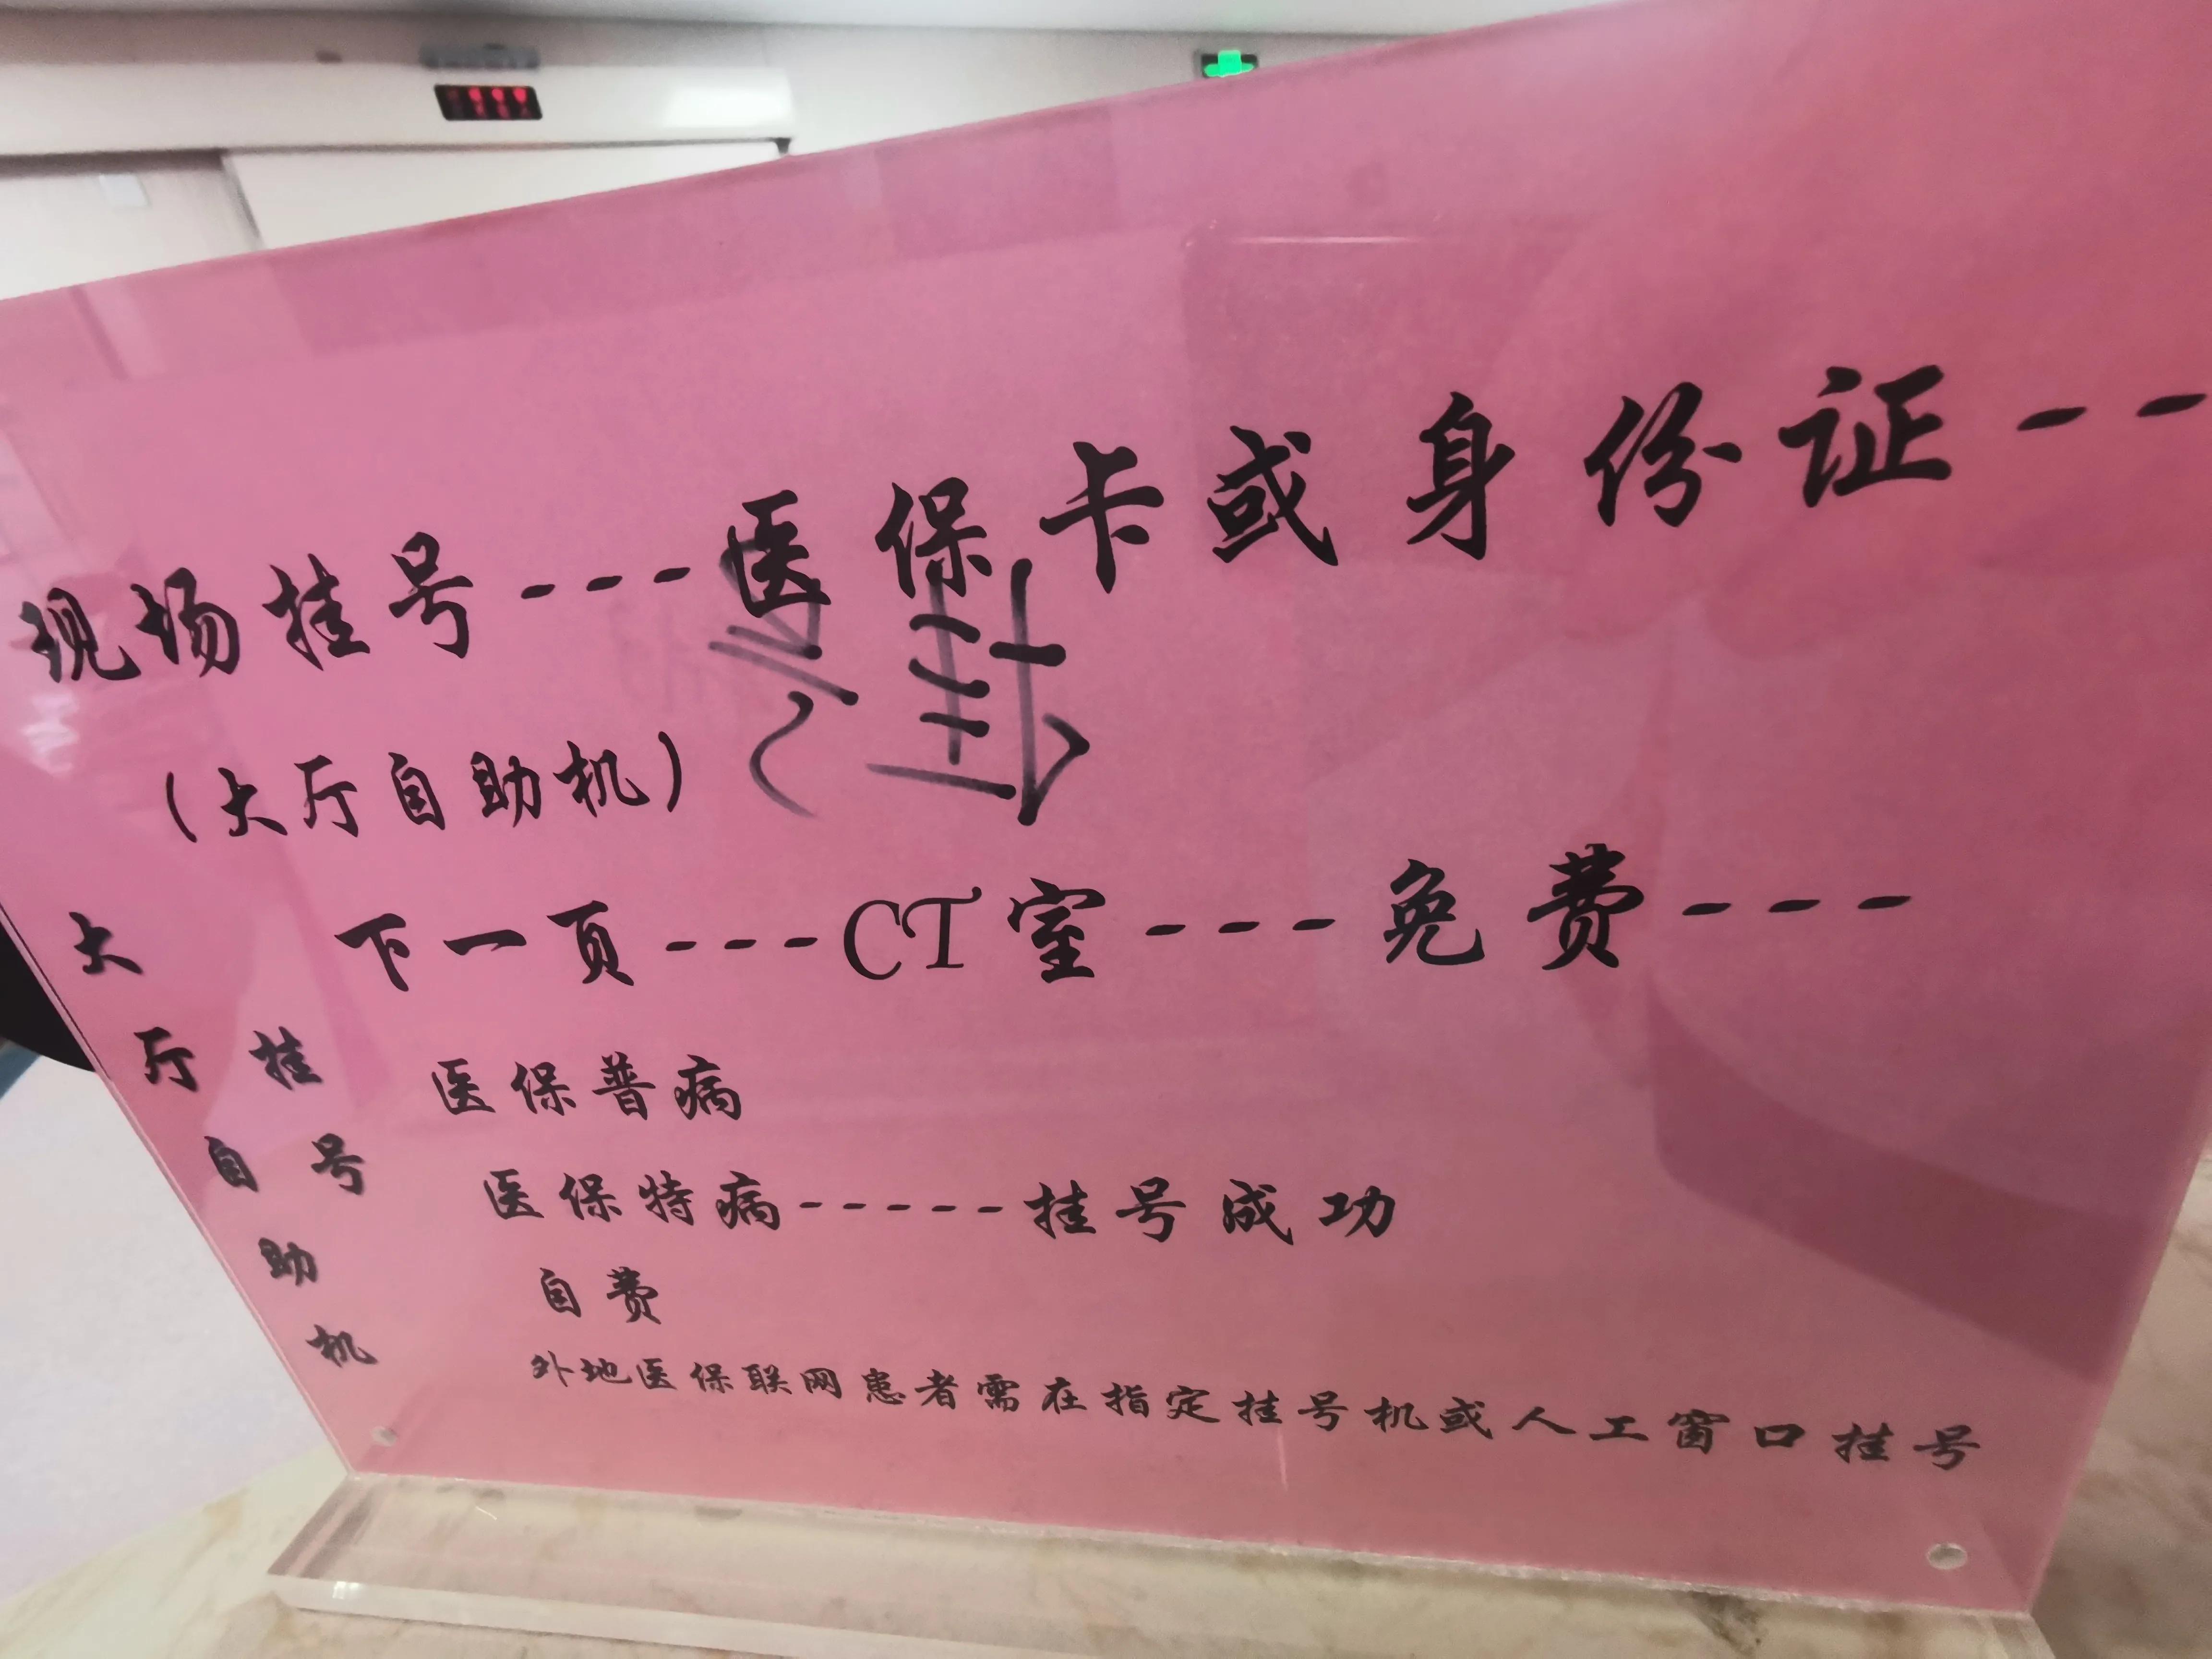 现场挂号---医保卡或身份证--
(大厅自助机)
下一页---CT室---免费---
大厅自助机
挂号
医保普病
医保特病-----挂号成功
自费
外地医保联网患者需在指定挂号机或人工窗口挂号